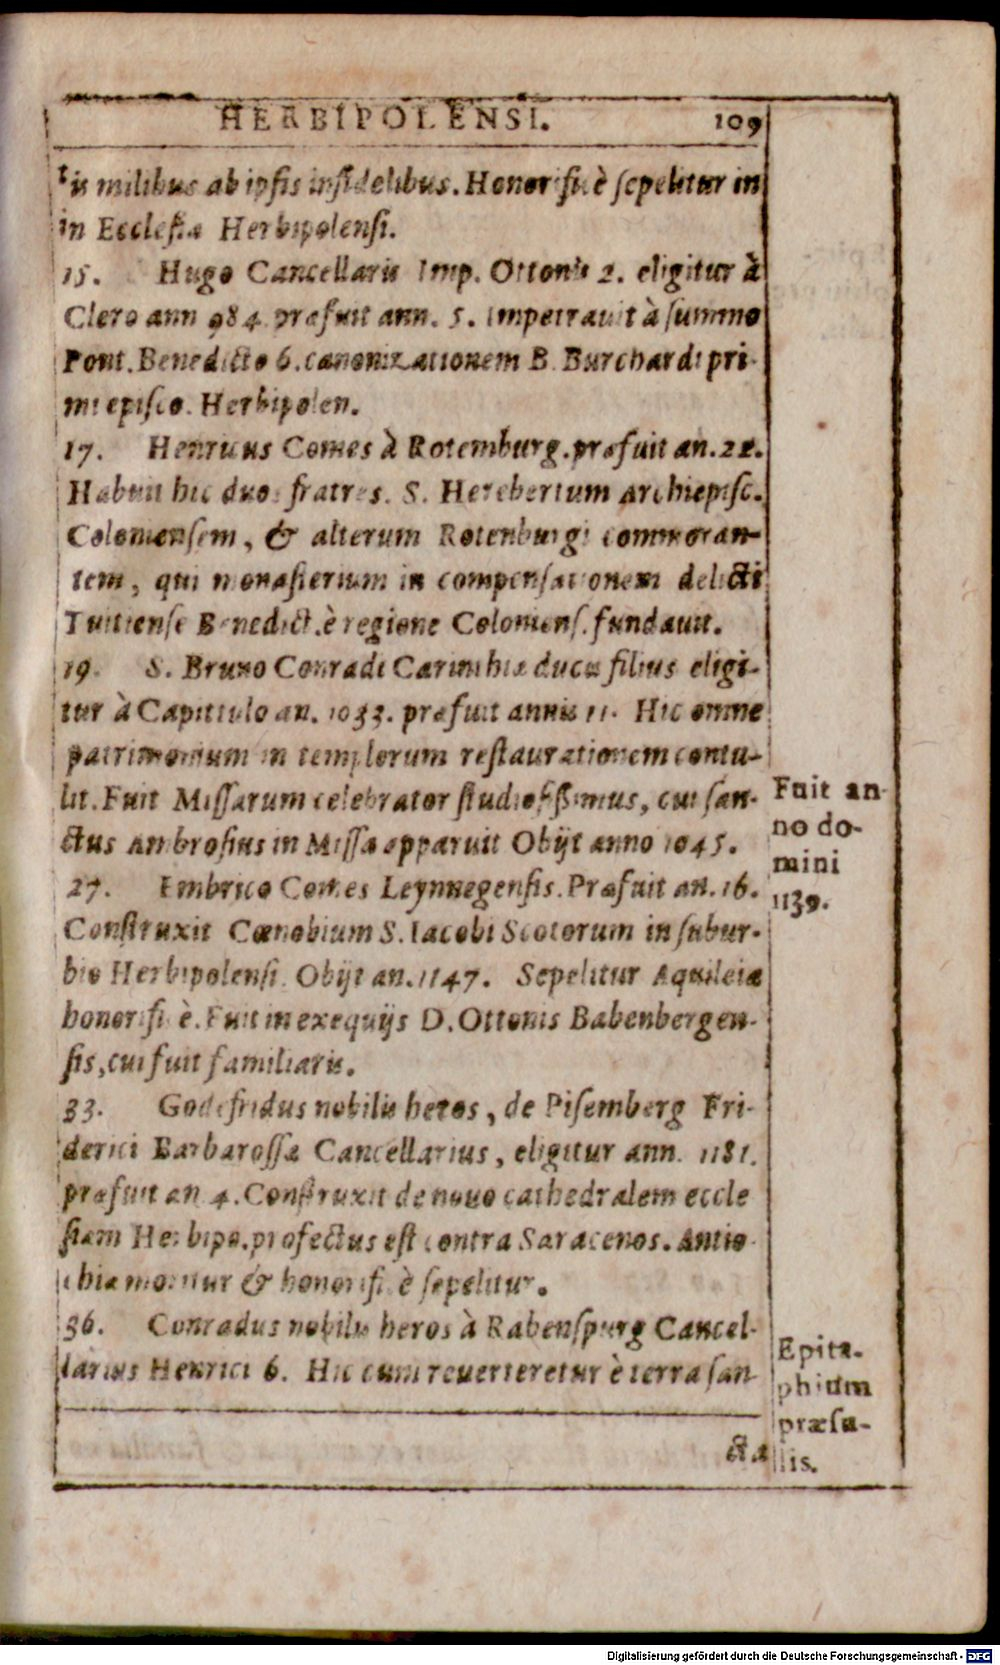 HERBIPOLENSI. 109
tis milibus ab ipsis infidelibus. Honorificè sepelitur in
in Ecclesia Herbipolensi.
15. Hugo Cancellaris Imp. Ottonis 2. eligitur à
Clero ann 984. præfuit ann. 5. Impetrauit à summo
Pont. Benedicto 6. canonizationem B. Burchardi pri-
mi episco. Herbipolen.
17. Henricus Comes à Rotemburg. præfuit an. 22.
Habuit hic duos fratres. S. Herebertum Archiepisc.
Coloniensem, & alterum Rotenburgi commoran-
tem, qui monasterium in compensationem delicti
Tuitiense Benedict. è regione Coloniens. fundauit.
19. S. Bruno Conradi Carinthiæ ducis filius eligi-
tur à Capittulo an. 1033. præfuit annis 11. Hic omne
patrimonium in templorum restaurationem contu-
lit. Fuit Missarum celebrator studiosissimus, cui san-
ctus Ambrosius in Missa apparuit Obijt anno 1045.
27. Embrico Comes Leynnegensis. Præfuit an. 16.
Construxit Cœnobium S. Iacobi Scotorum in subur-
bio Herbipolensi. Obijt an. 1147. Sepelitur Aquileiæ
honorificè. Fuit in exequijs D. Ottonis Babenbergen-
sis, cui fuit familiaris.
33. Godefridus nobilis heros, de Pisemberg Fri-
derici Barbarossæ Cancellarius, eligitur ann. 1181.
præfuit an 4. Construxit de nouo cathedralem eccle
siam Herbipo. profectus est contra Saracenos. Antio-
chiæ moritur & honorificè sepelitur.
36. Conradus nobilis heros à Rabenspurg Cancel-
larius Henrici 6. Hic cum reuerteretur è terra san-
cta
Fuit an-
no do-
mini
1139.
Epita-
phium
præsu-
lis.
Digitalisierung gefördert durch die Deutsche Forschungsgemeinschaft - DFG